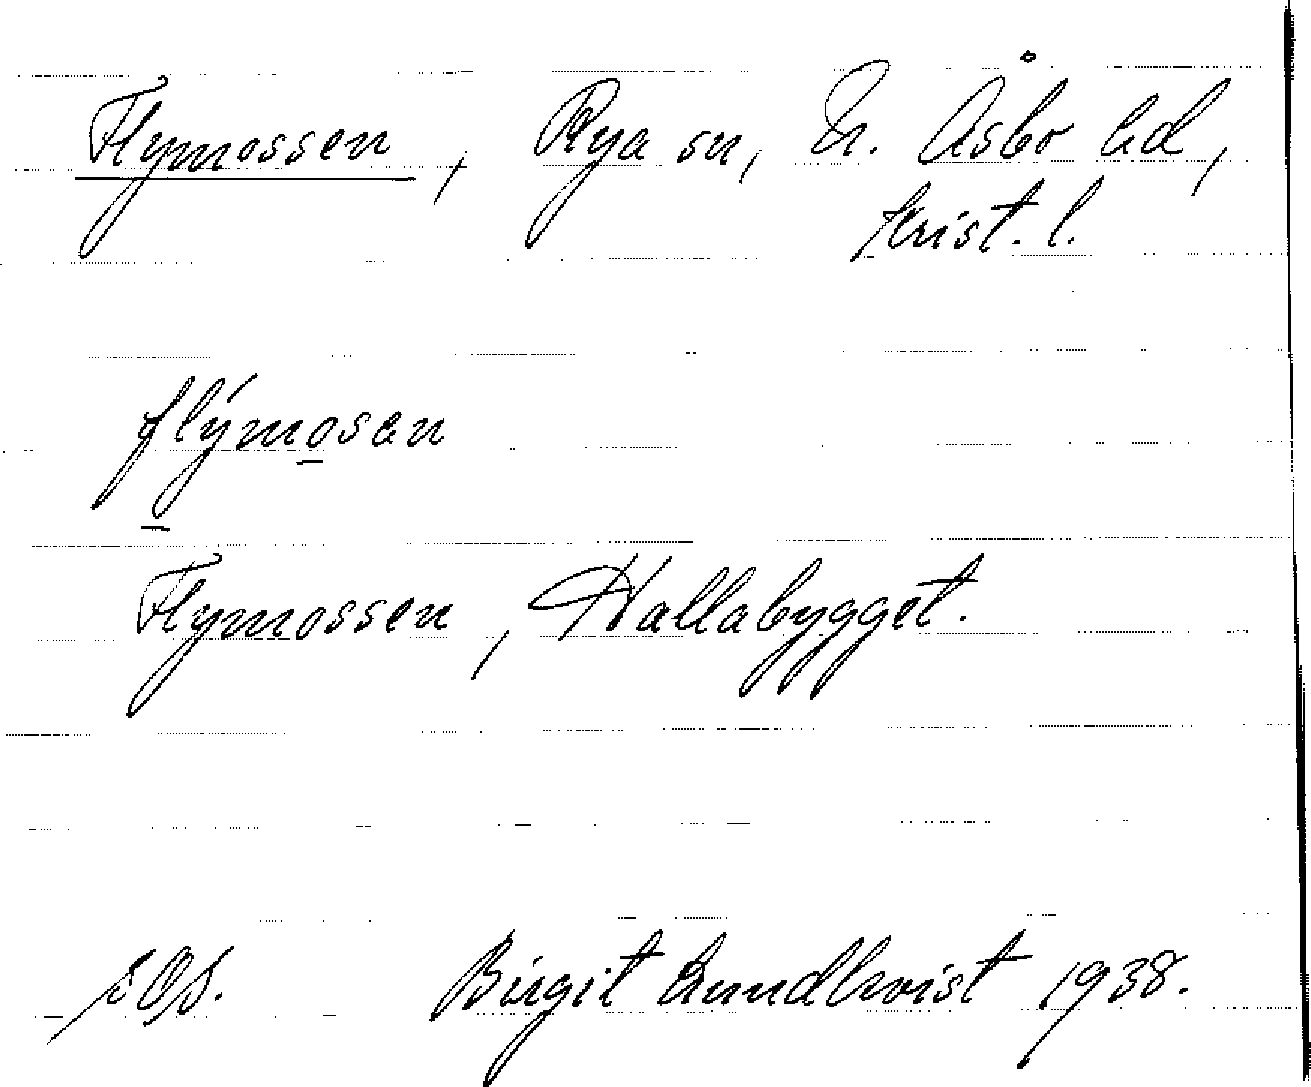 Flymossen, Rya sn, N. Åsbo hd,
Krist. l.
flýmosen
Flymossen, Hallabygget.
Birgit Lundkvist 1938.